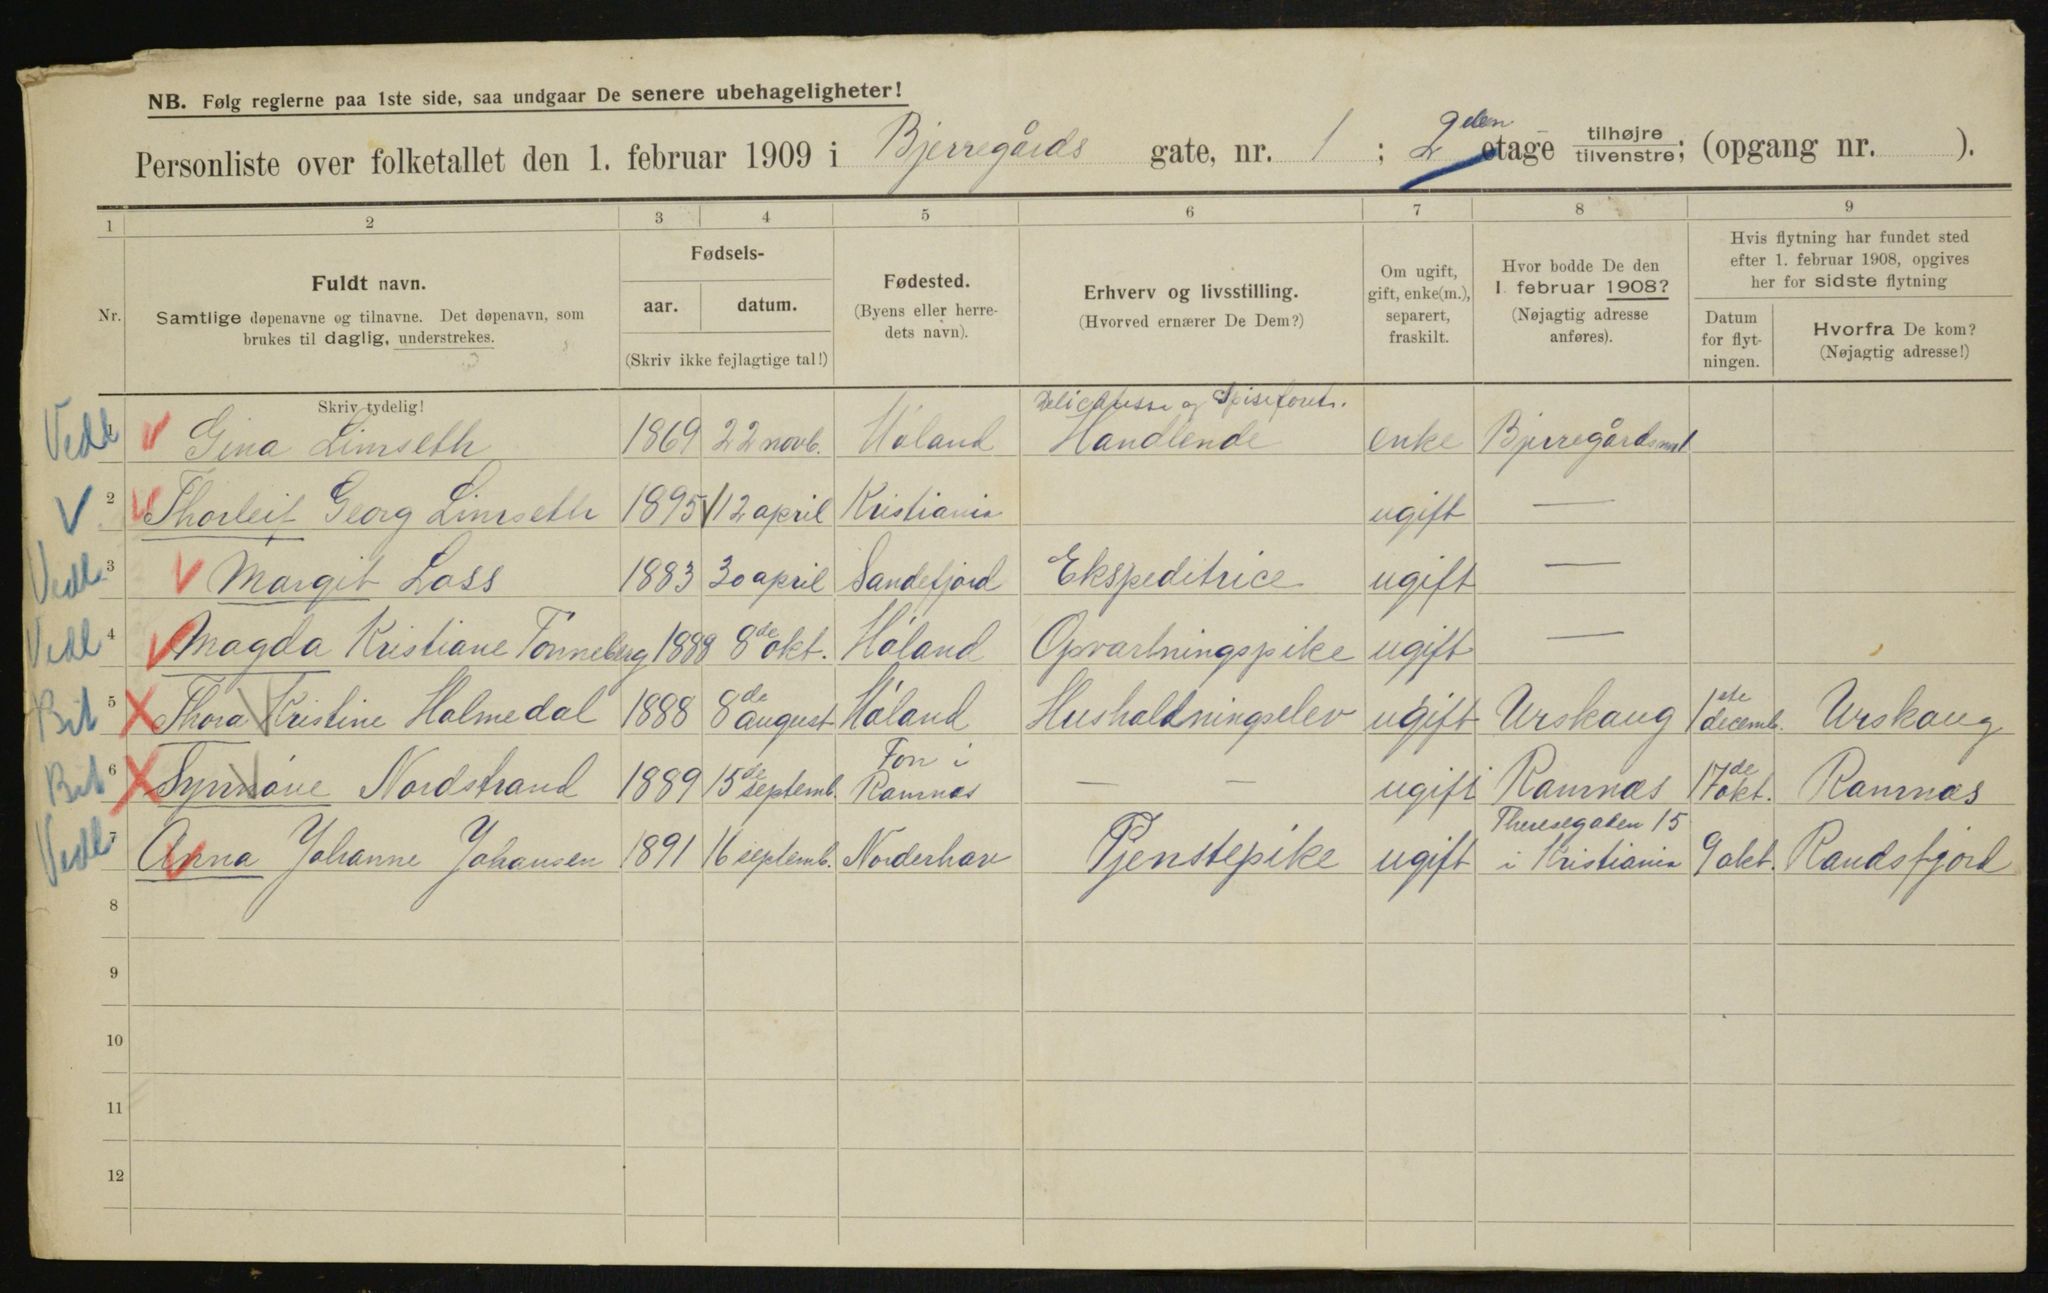 NB. Følg reglerne paa 1ste side, saa undgaar De senere ubehageligheter!
Personliste over folketallet den 1. februar 1909 i Bjerregårds gate, nr. 1 ; 2den etage tilhøjre tilvenstre; (opgang nr. ).
1 2 3 4 5 6 7 8 9
Nr.
Fuldt navn.
Samtlige døpenavne og tilnavne. Det døpenavn, som
brukes til daglig, understrekes.
Skriv tydelig!
Fødsels-
aar. datum.
(Skriv ikke fejlagtige tal!)
Fødested.
(Byens eller herre-
dets navn).
Erhverv og livsstilling.
(Hvorved ernærer De Dem?)
Om ugift,
gift, enke(m.),
separert,
fraskilt.
Hvor bodde De den
1. februar 1908?
(Nøjagtig adresse
anføres).
Hvis flytning har fundet sted
efter 1. februar 1908, opgives
her for sidste flytning
Datum
for flyt-
ningen.
Hvorfra De kom?
(Nøjagtig adresse!)
Vedl 1 Gina Limseth 1869 22 novb. Høland Handlende enke
2 Thorleif Georg Limseth 1895 12 april Kristiania ugift —
Vedl 3 Margit Lass 1883 30 april Sandefjord Ekspeditrice ugift —
Vedl 4 Magda Kristiane Tønneberg 1888 8de okt. Høland Opvartningspike ugift —
Bit 5 Thora Kristine Holmedal 1888 8de august Høland Husholdningselev ugift Urskaug 1ste decemb. Urskaug
Bit 6 Synnøve Nordstrand 1889 15de septemb. Fon i Ramnæs — — ugift Ramnæs 17de okt. Ramnæs
Vedl 7 Anna Johanne Johansen 1891 16 septemb. Norderhov Tjenstepike ugift Theresegaden 15 i Kristiania 9 okt. Randsfjord
8
9
10
11
12